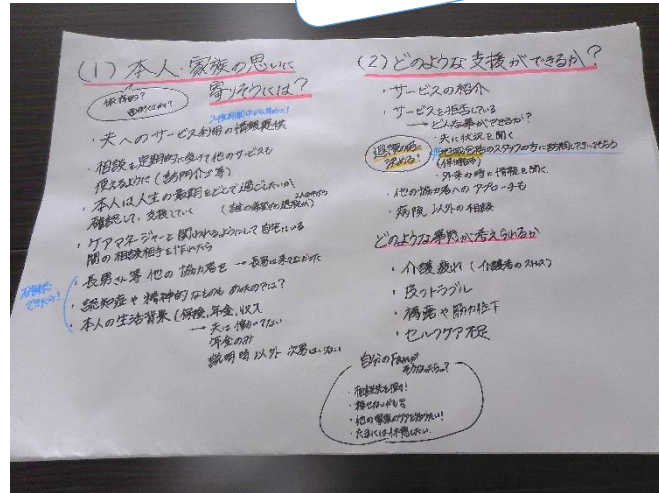 (1) 本人・家族の思いに
寄りそうには?
体務的?
・夫へのサービス利用の情報提供
・相談を定期的に受けて他のサービスも
使えるように(訪問介護等)
・本人は人生の最期をどこで過ごしたいか
確認して、支援していく
・ケアマネージャーと関われるようにして自宅にいる
間の相談相手を作れたら
・長男さん等他の協力者を → 長男は来てなかった
・認知症や精神的なものもあったのでは?
・本人の生活背景(保険、年金、収入
→ 夫は働いてない
年金のみ
説明時以外 次男はいない
(2) どのような支援ができるか?
・サービスの紹介
・サービスを拒否している
→ どんな事ができるか?
・夫に状況を聞く
退院前
決める!
(保健師)
・外来の時に情報を聞く
・他の協力者へのアプローチも
・病院以外の相談
どのような事が考えられるか
・介護疲れ(介護者のストレス)
・皮フトラブル
・褥瘡や筋力低下
・セルフケア不足
自分のFamilyが
そうなったら?
・相談先を探す!
・他の家族のケアも知りたい!
・たまには休憩したい